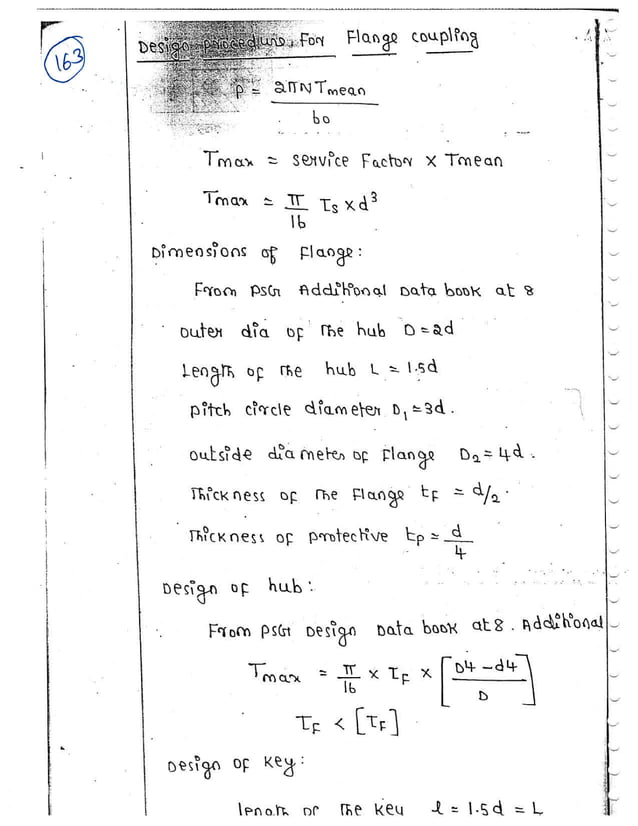 163
Design procedure For Flange coupling
P = 2πNTmean / 60
Tmax = service Factor x Tmean
Tmax = π/16 τs x d³
Dimensions of Flange:
From PSG Additional Data book at 8
outer dia of the hub D = 2d
Length of the hub L = 1.5d
pitch circle diameter D₁ = 3d.
outside diameter of Flange D₂ = 4d.
Thickness of the Flange tF = d/2.
Thickness of protective tp = d/4
Design of hub:
From PSG Design Data book at 8. Additional
Tmax = π/16 x τF x [D4 - d4 / D]
τF < [τF]
Design of key:
length of the key l = 1.5d = L